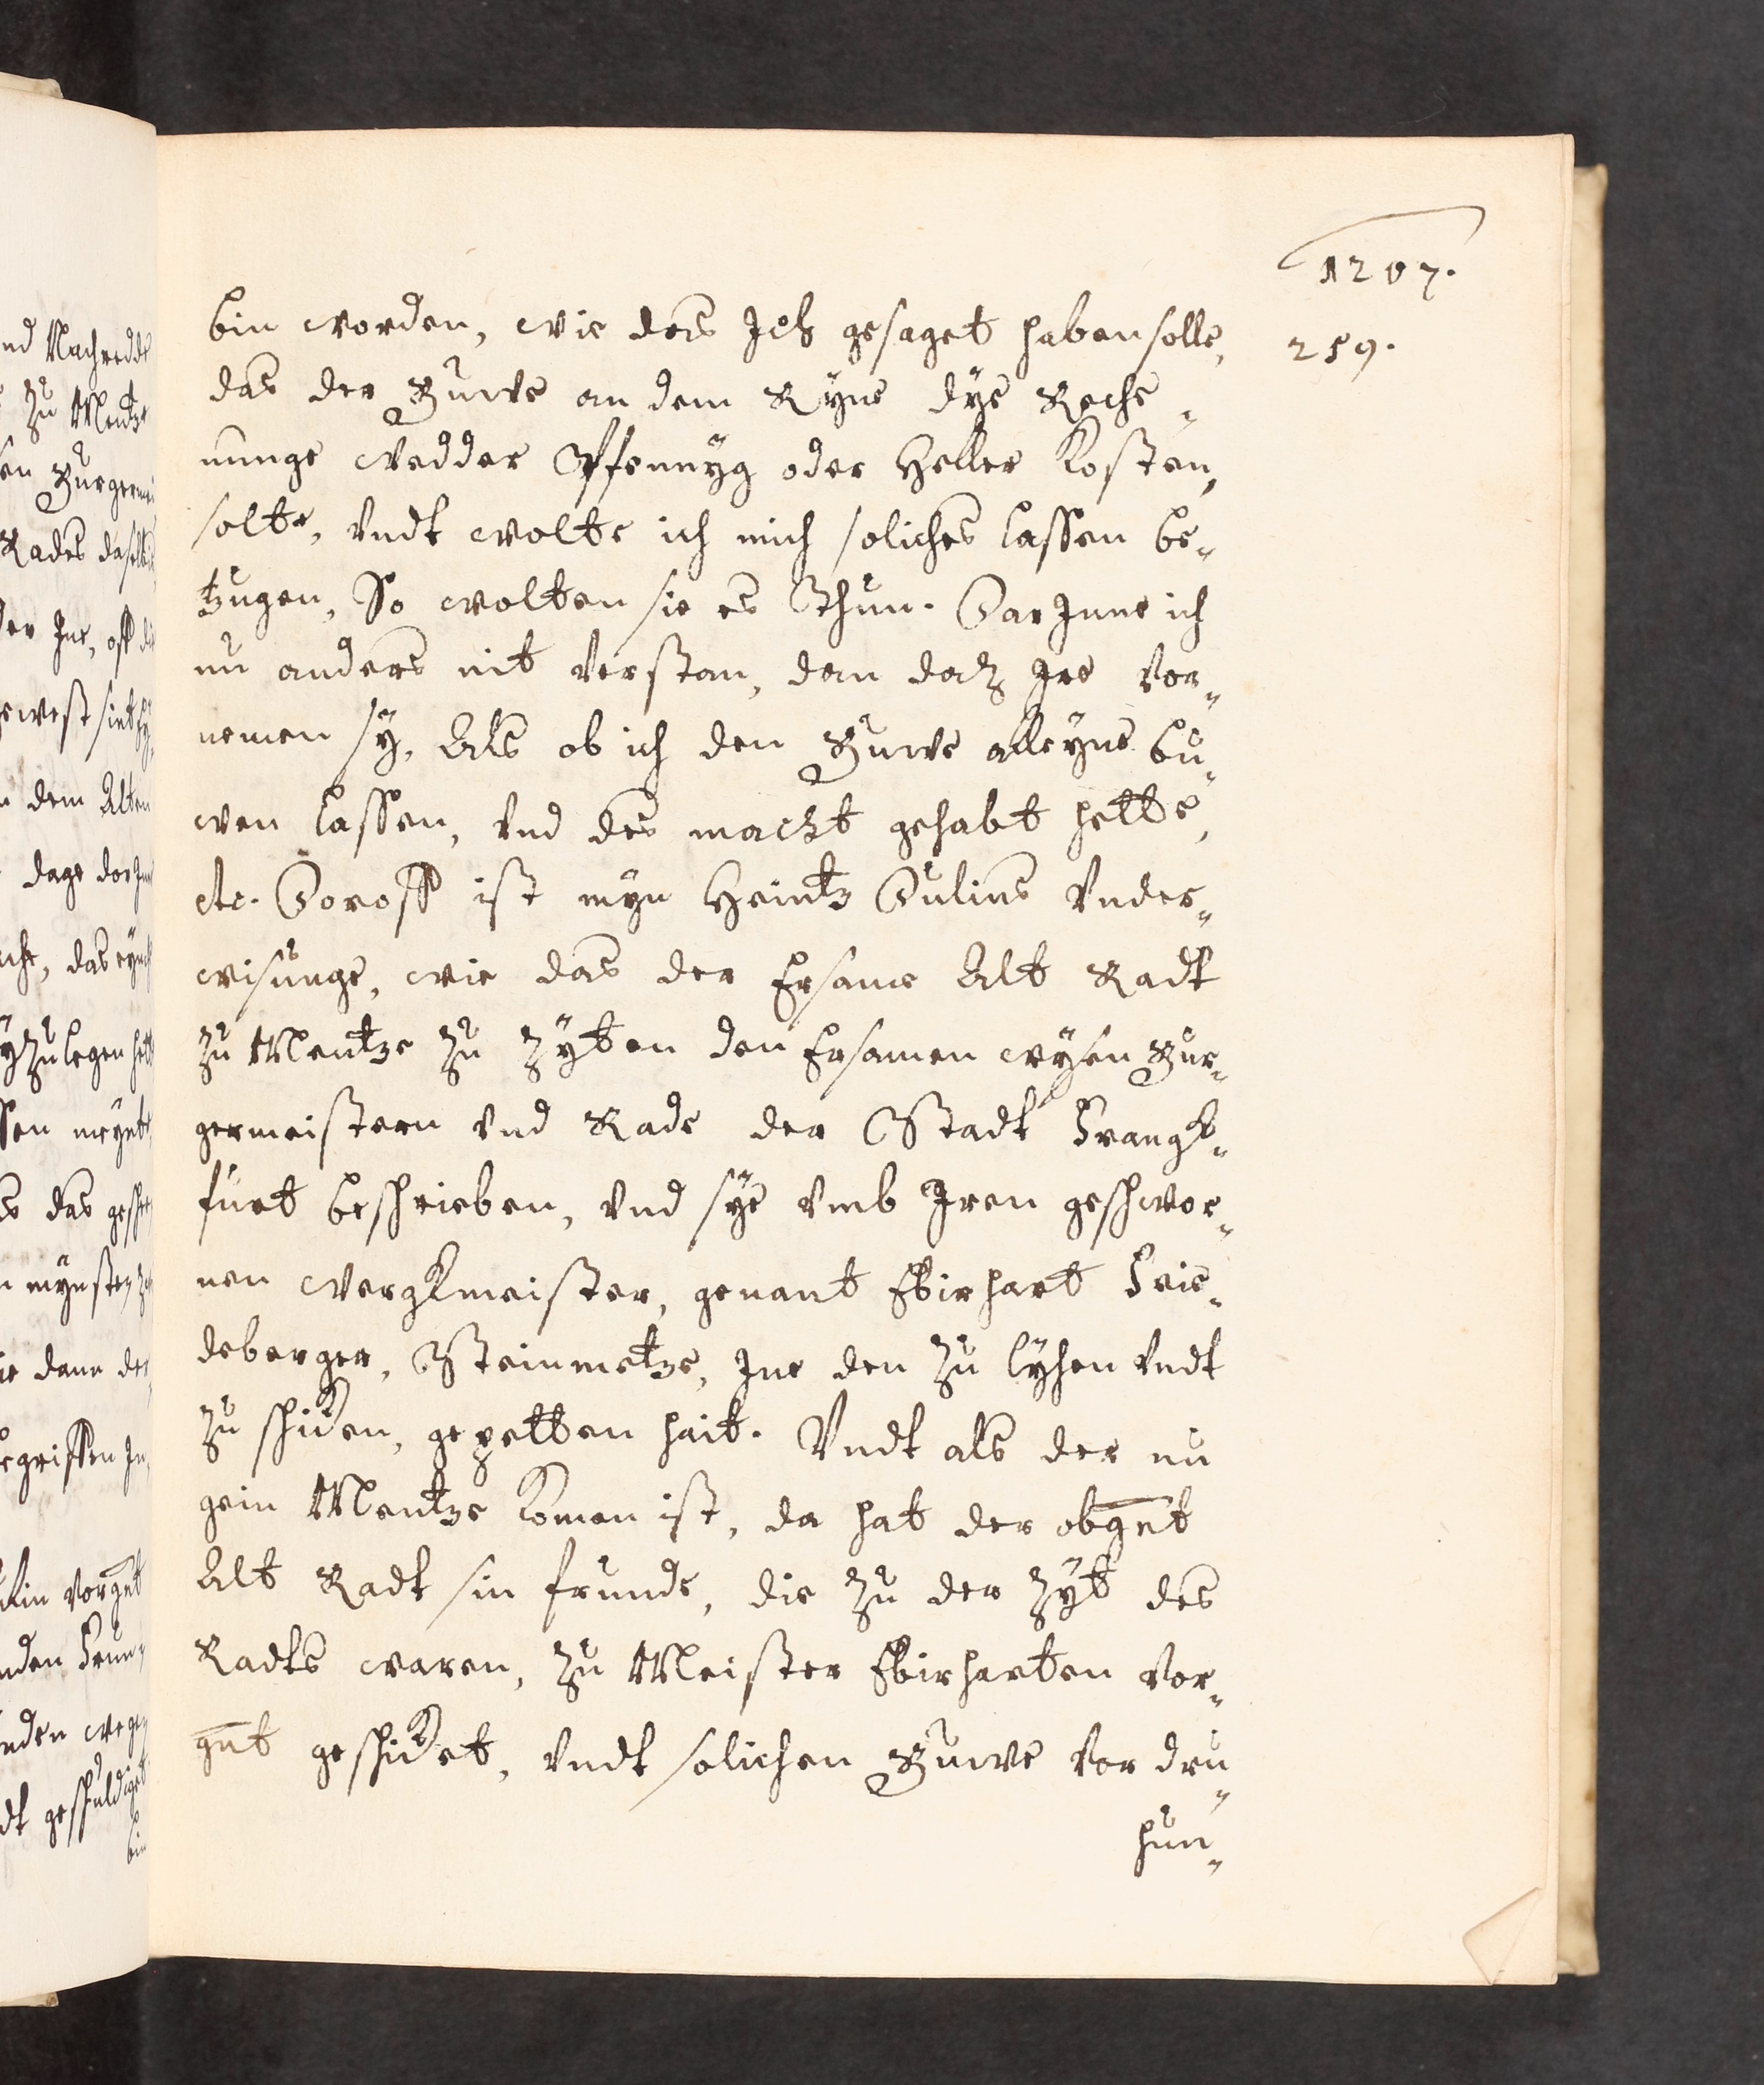 1207.
259.
bin worden, wie das Ich gesaget haben solle,
das der Buwe an dem Ryne dye Reche¬
nunge wedder Pfennyg oder Heller Kosten,
solte, vndt wolte ich mich soliches lassen be¬
tzugen, So wolten sie es Thun. Dar Inne ich
nu anders nit verstan, dan daz Ire vor¬
nemen sÿ, Als ob ich den Buwe alleyne bu¬
wen lassen, vnd des macht gehabt hette,
etc. Doroff ist mÿn Heintz Dulins vnder¬
wisunge, wie das der Ersame Alt Radt
zu Mentze zu Zÿten den Ersamen wÿsen Bur¬
germeistern vnd Rade der Stadt Frangk¬
furt beschrieben, vnd sÿe vmb Iren geschwor¬
nen wergkmeister, genant Ebirhart Frie¬
deberger, Steinmetze, Ine den zu lÿhen vndt
zu schicken, gepetten hait. Vndt als der nu
gein Mentze komen ist, da hat der obgnt
Alt Radt sin frunde, die zu der Zÿt des
Radts waren, zu Meister Ebirharten vor¬
gnt geschicket, vndt solichen Buwe vor dru¬
hun¬
nd Nachredde
zu Mentze
Rades
dem Alten
dage
das
zulegen
das
dann der
vorgnt